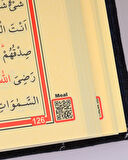 اَنْتَ
صِدْقُهُمْ
رَضِيَ اللّٰهُ
السَّمٰوَاتِ
Meal
126